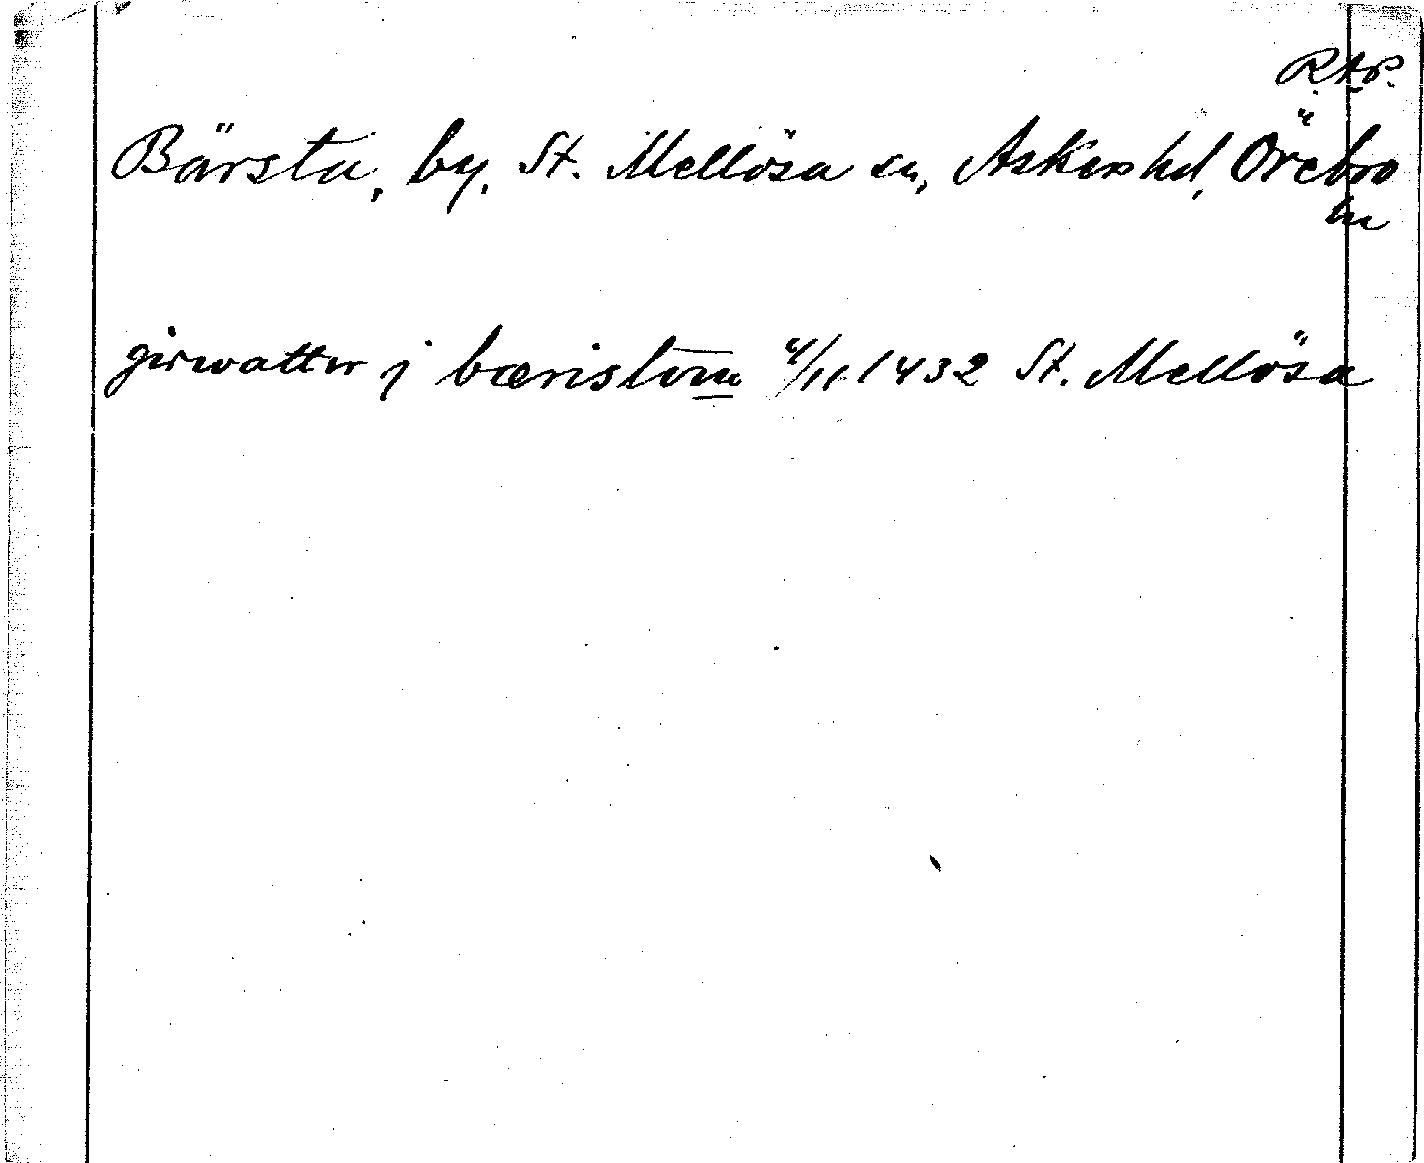 R.A.P.
Bärsta, by, St. Mellösa sn, Askers hd, Örebro
ln
girwatter j bæristom 4/11 1432 St. Mellösa